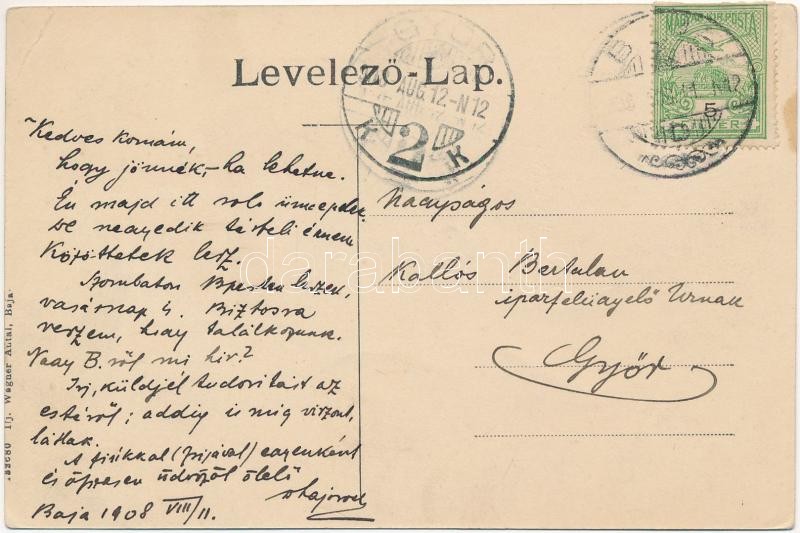 Levelező-Lap.
GYŐR
AUG.12-N12
K 2 K
MAGYAR KIR. POSTA
5
Kedves Komám,
hogy jönnék,-ha lehetne.
Én majd itt
be negyedik
Közöttetek lesz.
Szombaton Bpesten leszek,
vasárnap is. Biztosra
veszem, hogy találkozunk.
Nagy B.ről mi hír?
Írj, küldjél tudósítást az
estéről; addig is míg viszont
látlak.
A fiúkkal egyenként
és öledő
Baja 1908 VIII/11.
Nagyságos
Kallós Bertalan
iparfelügyelő Úrnak
Győr
Ifj. Wagner Antal, Baja.
darabanth